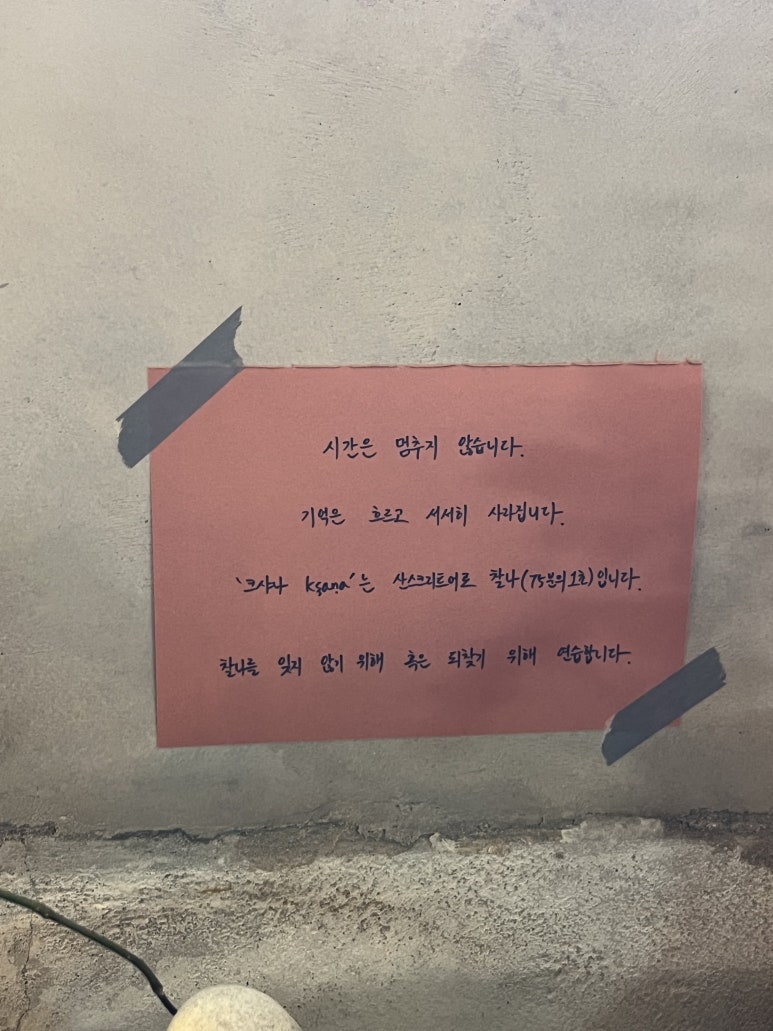 시간은 멈추지 않습니다.
기억은 흐르고 서서히 사라집니다.
'크샤나 kṣaṇa'는 산스크리트어로 찰나(75분의1초)입니다.
찰나를 잊지 않기 위해 혹은 되찾기 위해 연습합니다.